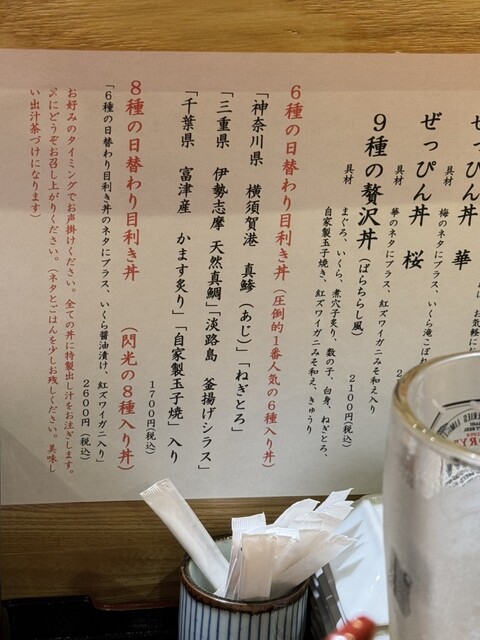 ぜっぴん丼 華
具材
梅のネタにプラス、いくら滝こぼれ
ぜっぴん丼 桜
具材
華のネタにプラス、紅ズワイガニみそ和え入り
9種の贅沢丼(ばらちらし風)
具材
まぐろ、いくら、煮穴子炙り、数の子、白身、ねぎとろ、
自家製玉子焼き、紅ズワイガニみそ和え、きゅうり
2100円(税込)
6種の日替わり目利き丼(圧倒的1番人気の6種入り丼)
「神奈川県 横須賀港 真鯵(あじ)」「ねぎとろ」
「三重県 伊勢志摩 天然真鯛」「淡路島 釜揚げシラス」
「千葉県 富津産 かます炙り」「自家製玉子焼」入り
1700円(税込)
8種の日替わり目利き丼 (閃光の8種入り丼)
「6種の日替わり目利き丼のネタにプラス、いくら醤油漬け、紅ズワイガニ入り」
2600円(税込)
お好みのタイミングでお声掛けください。全ての丼に特製出し汁をお注ぎします。
〆にどうぞお召し上がりください。(ネタとごはんを少しお残しください。美味し
い出汁茶づけになります)